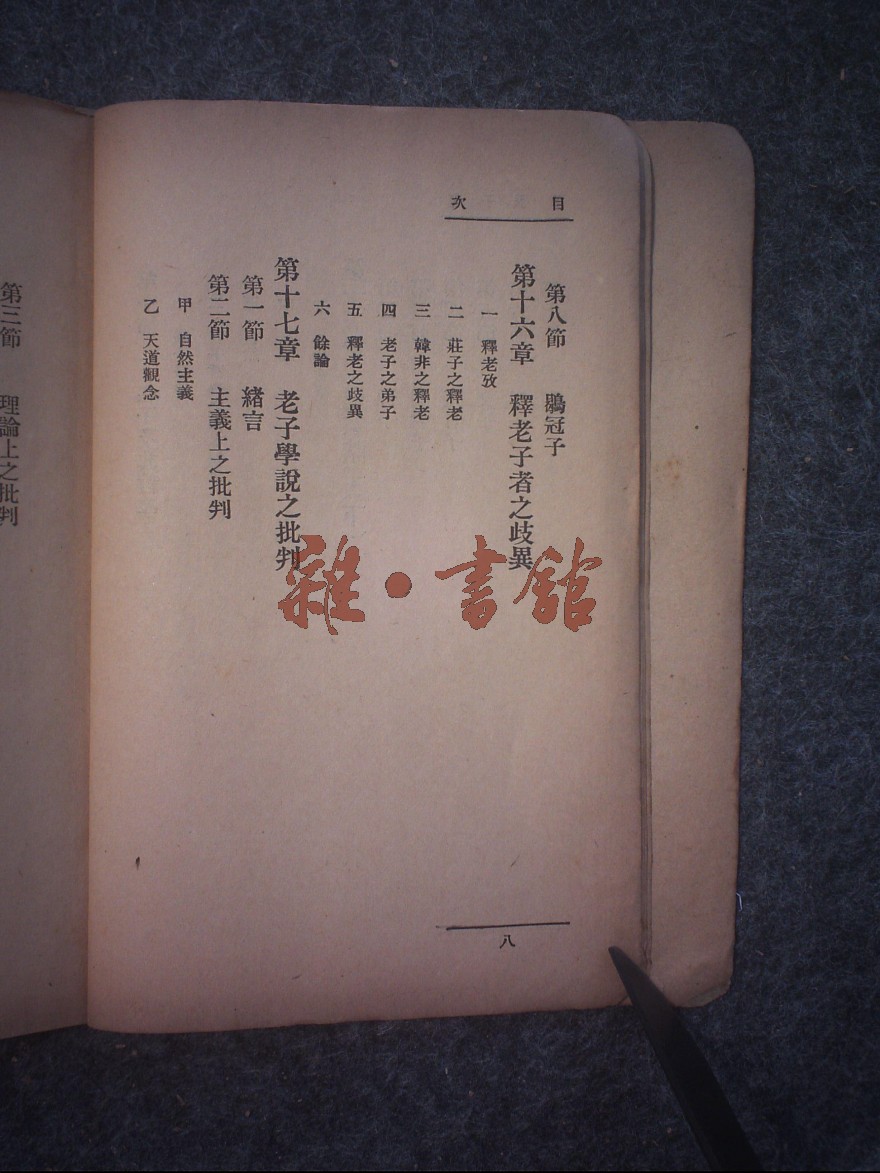 目次
第八節 鶡冠子
第十六章 釋老子者之歧異
一 釋老攷
二 莊子之釋老
三 韓非之釋老
四 老子之弟子
五 釋老之歧異
六 餘論
第十七章 老子學說之批判
第一節 緒言
第二節 主義上之批判
甲 自然主義
乙 天道觀念
八
第三節 理論上之批判
雜·書館